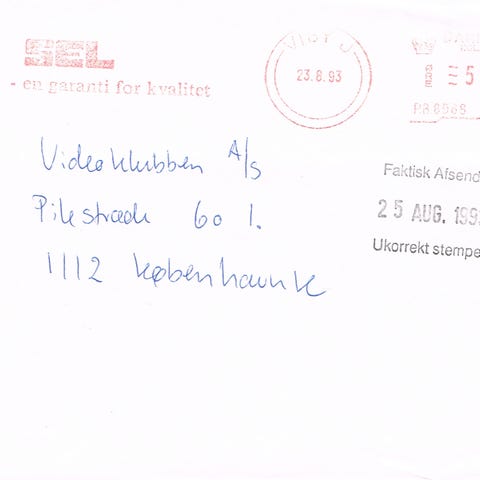 SEL
- en garanti for kvalitet
VIBY J
23.8.93
DAN
5
PB 8969
Videoklubben A/S
Pilestræde 60 1.
1112 København K
Faktisk Afsend
25 AUG. 199
Ukorrekt stempe